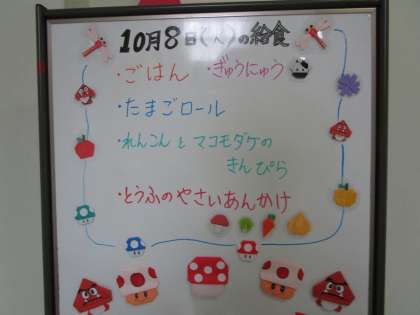 10月8日(火)の給食
・ごはん ・ぎゅうにゅう
・たまごロール
・れんこんとマコモダケの
きんぴら
・とうふのやさいあんかけ